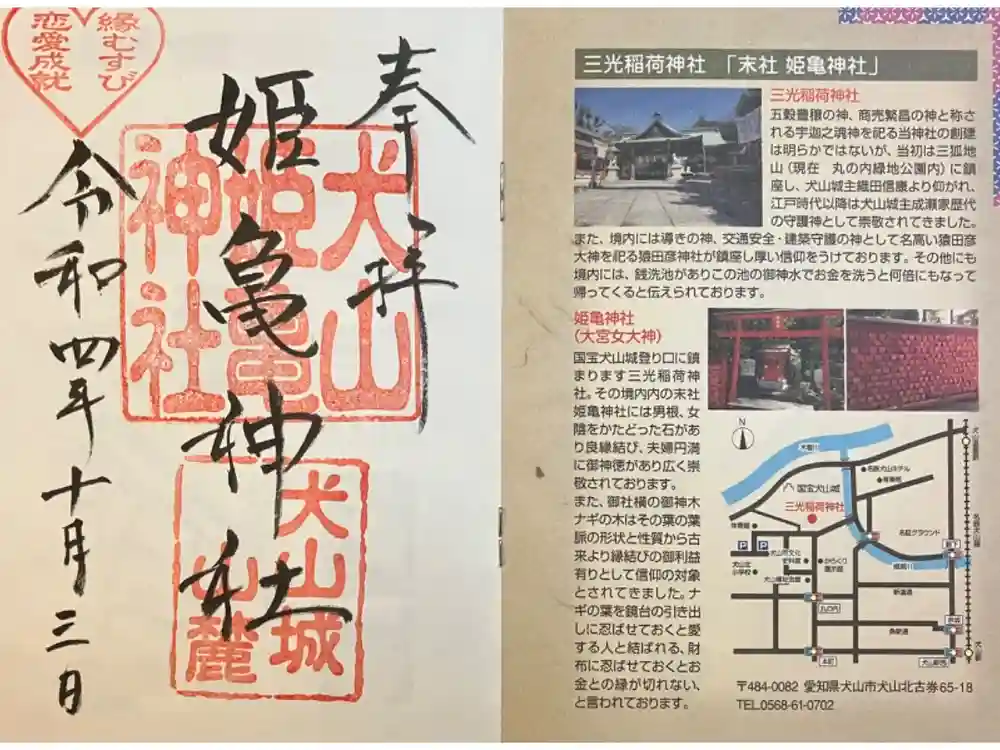 縁むすび
恋愛成就
奉拝
犬山
姫亀
神社
姫亀神社
犬山城
山麓
令和四年十月三日
三光稲荷神社 「末社 姫亀神社」
三光稲荷神社
五穀豊穣の神、商売繁昌の神と称さ
れる宇迦之御魂神を祀る当神社の創建
は明らかではないが、当初は三狐地
山（現在 丸の内緑地公園内）に鎮
座し、犬山城主織田信康より仰がれ、
江戸時代以降は犬山城主成瀬家歴代
の守護神として崇敬されてきました。
また、境内には導きの神、交通安全・建築守護の神として名高い猿田彦
大神を祀る猿田彦神社が鎮座し厚い信仰をうけております。その他にも
境内には、銭洗池がありこの池の御神水でお金を洗うと何倍にもなって
帰ってくると伝えられております。
姫亀神社
（大宮女大神）
国宝犬山城登り口に鎮
まります三光稲荷神
社。その境内内の末社
姫亀神社には男根、女
陰をかたどった石があ
り良縁結び、夫婦円満
に御神徳があり広く崇
敬されております。
また、御社横の御神木
ナギの木はその葉の葉
脈の形状と性質から古
来より縁結びの御利益
有りとして信仰の対象
とされてきました。ナ
ギの葉を鏡台の引き出
しに忍ばせておくと愛
する人と結ばれる、財
布に忍ばせておくとお
金との縁が切れない、
と言われております。
N
木曽川
名鉄犬山ホテル
有楽苑
国宝犬山城
三光稲荷神社
体育館
名証グラウンド
P
P
犬山市文化
史料館
からくり
展示館
犬山北
小学校
犬山福祉会館
郷瀬川
新道通
丸の内
魚新通
本町
犬山駅西
名鉄犬山線
犬山駅
〒484-0082 愛知県犬山市犬山北古券65-18
TEL.0568-61-0702